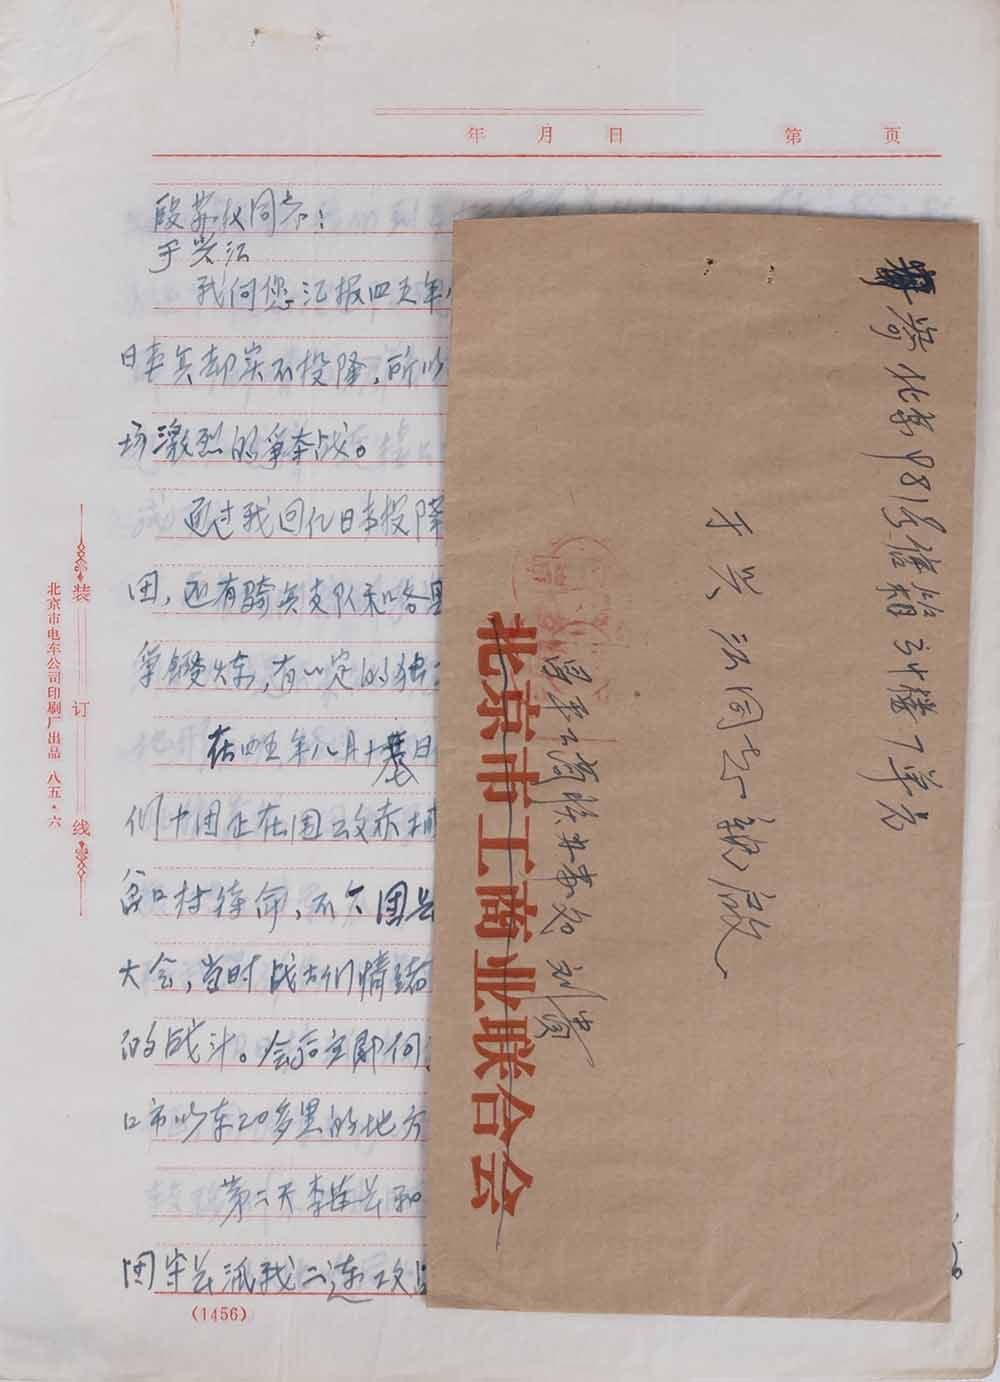 年 月 日 第 页
段苏权同志:
于兴江
我向您汇报四五年
日本兵却实不投降,所以
场激烈的争夺战。
通过我回忆日本投降
团,还有骑兵支队和各
争锻炼,有一定的独
在四五年八月十日
们十团正在围攻赤
口村待命,不久团
大会,当时战士们情绪
的战斗。会后立即向
口市以东20多里的地方
第二天李
团守 派我二连攻
(1456)
装订线
北京市电车公司印刷厂出品 八五·六
寄北京981号信箱 楼7单元
于兴江同志 亲启
北京市工商业联合会